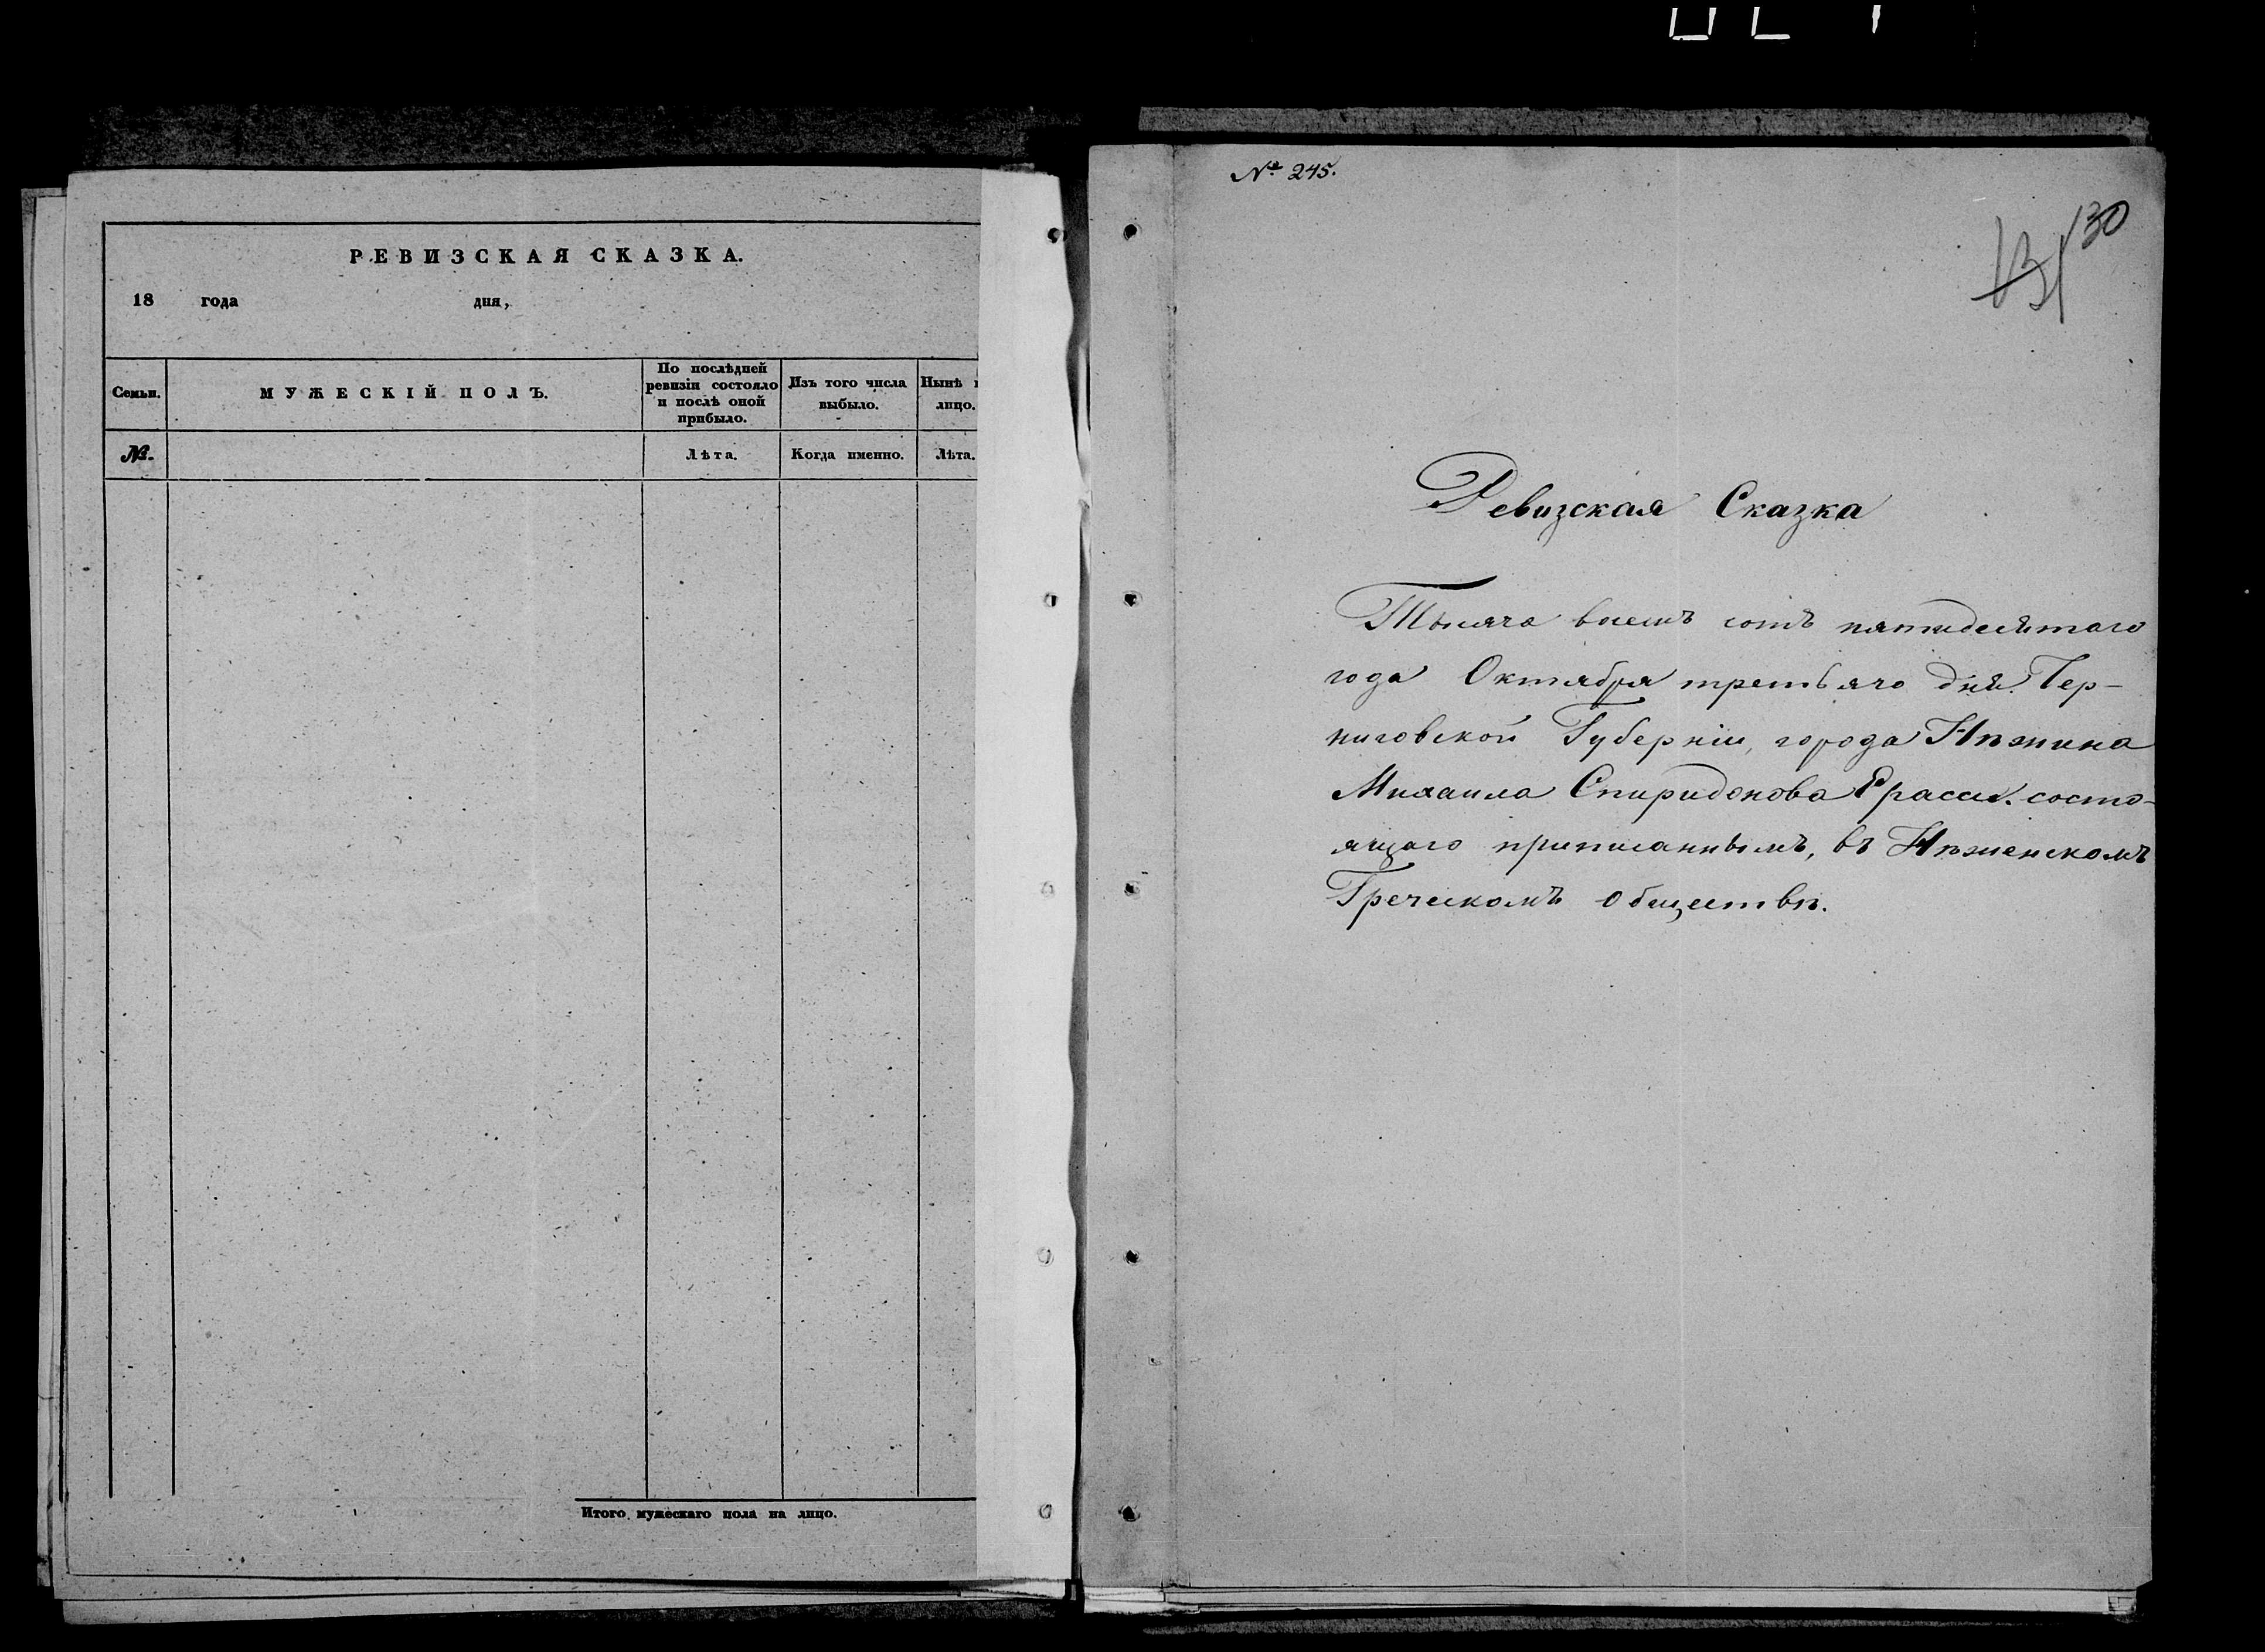 РЕВИЗСКАЯ СКАЗКА.
18 года дня,
Семьи.
МУЖЕСКІЙ ПОЛЪ.
По послѣдней
ревизіи состояло
и послѣ оной
прибыло.
Изъ того числа
выбыло.
Нынѣ
лицо.
№.
Лѣта.
Когда именно.
Лѣта.
Итого мужескаго пола на лицо.
№ 245.
130
131
Ревизская Сказка
Тысяча восемь сотъ пятидесятаго
года Октября третьяго дня. Чер-
ниговской Губерніи, города Нѣжина
Михаила Спиридонова состо-
ящаго приписаннымъ, въ Нѣженскомъ
Греческомъ обществѣ.